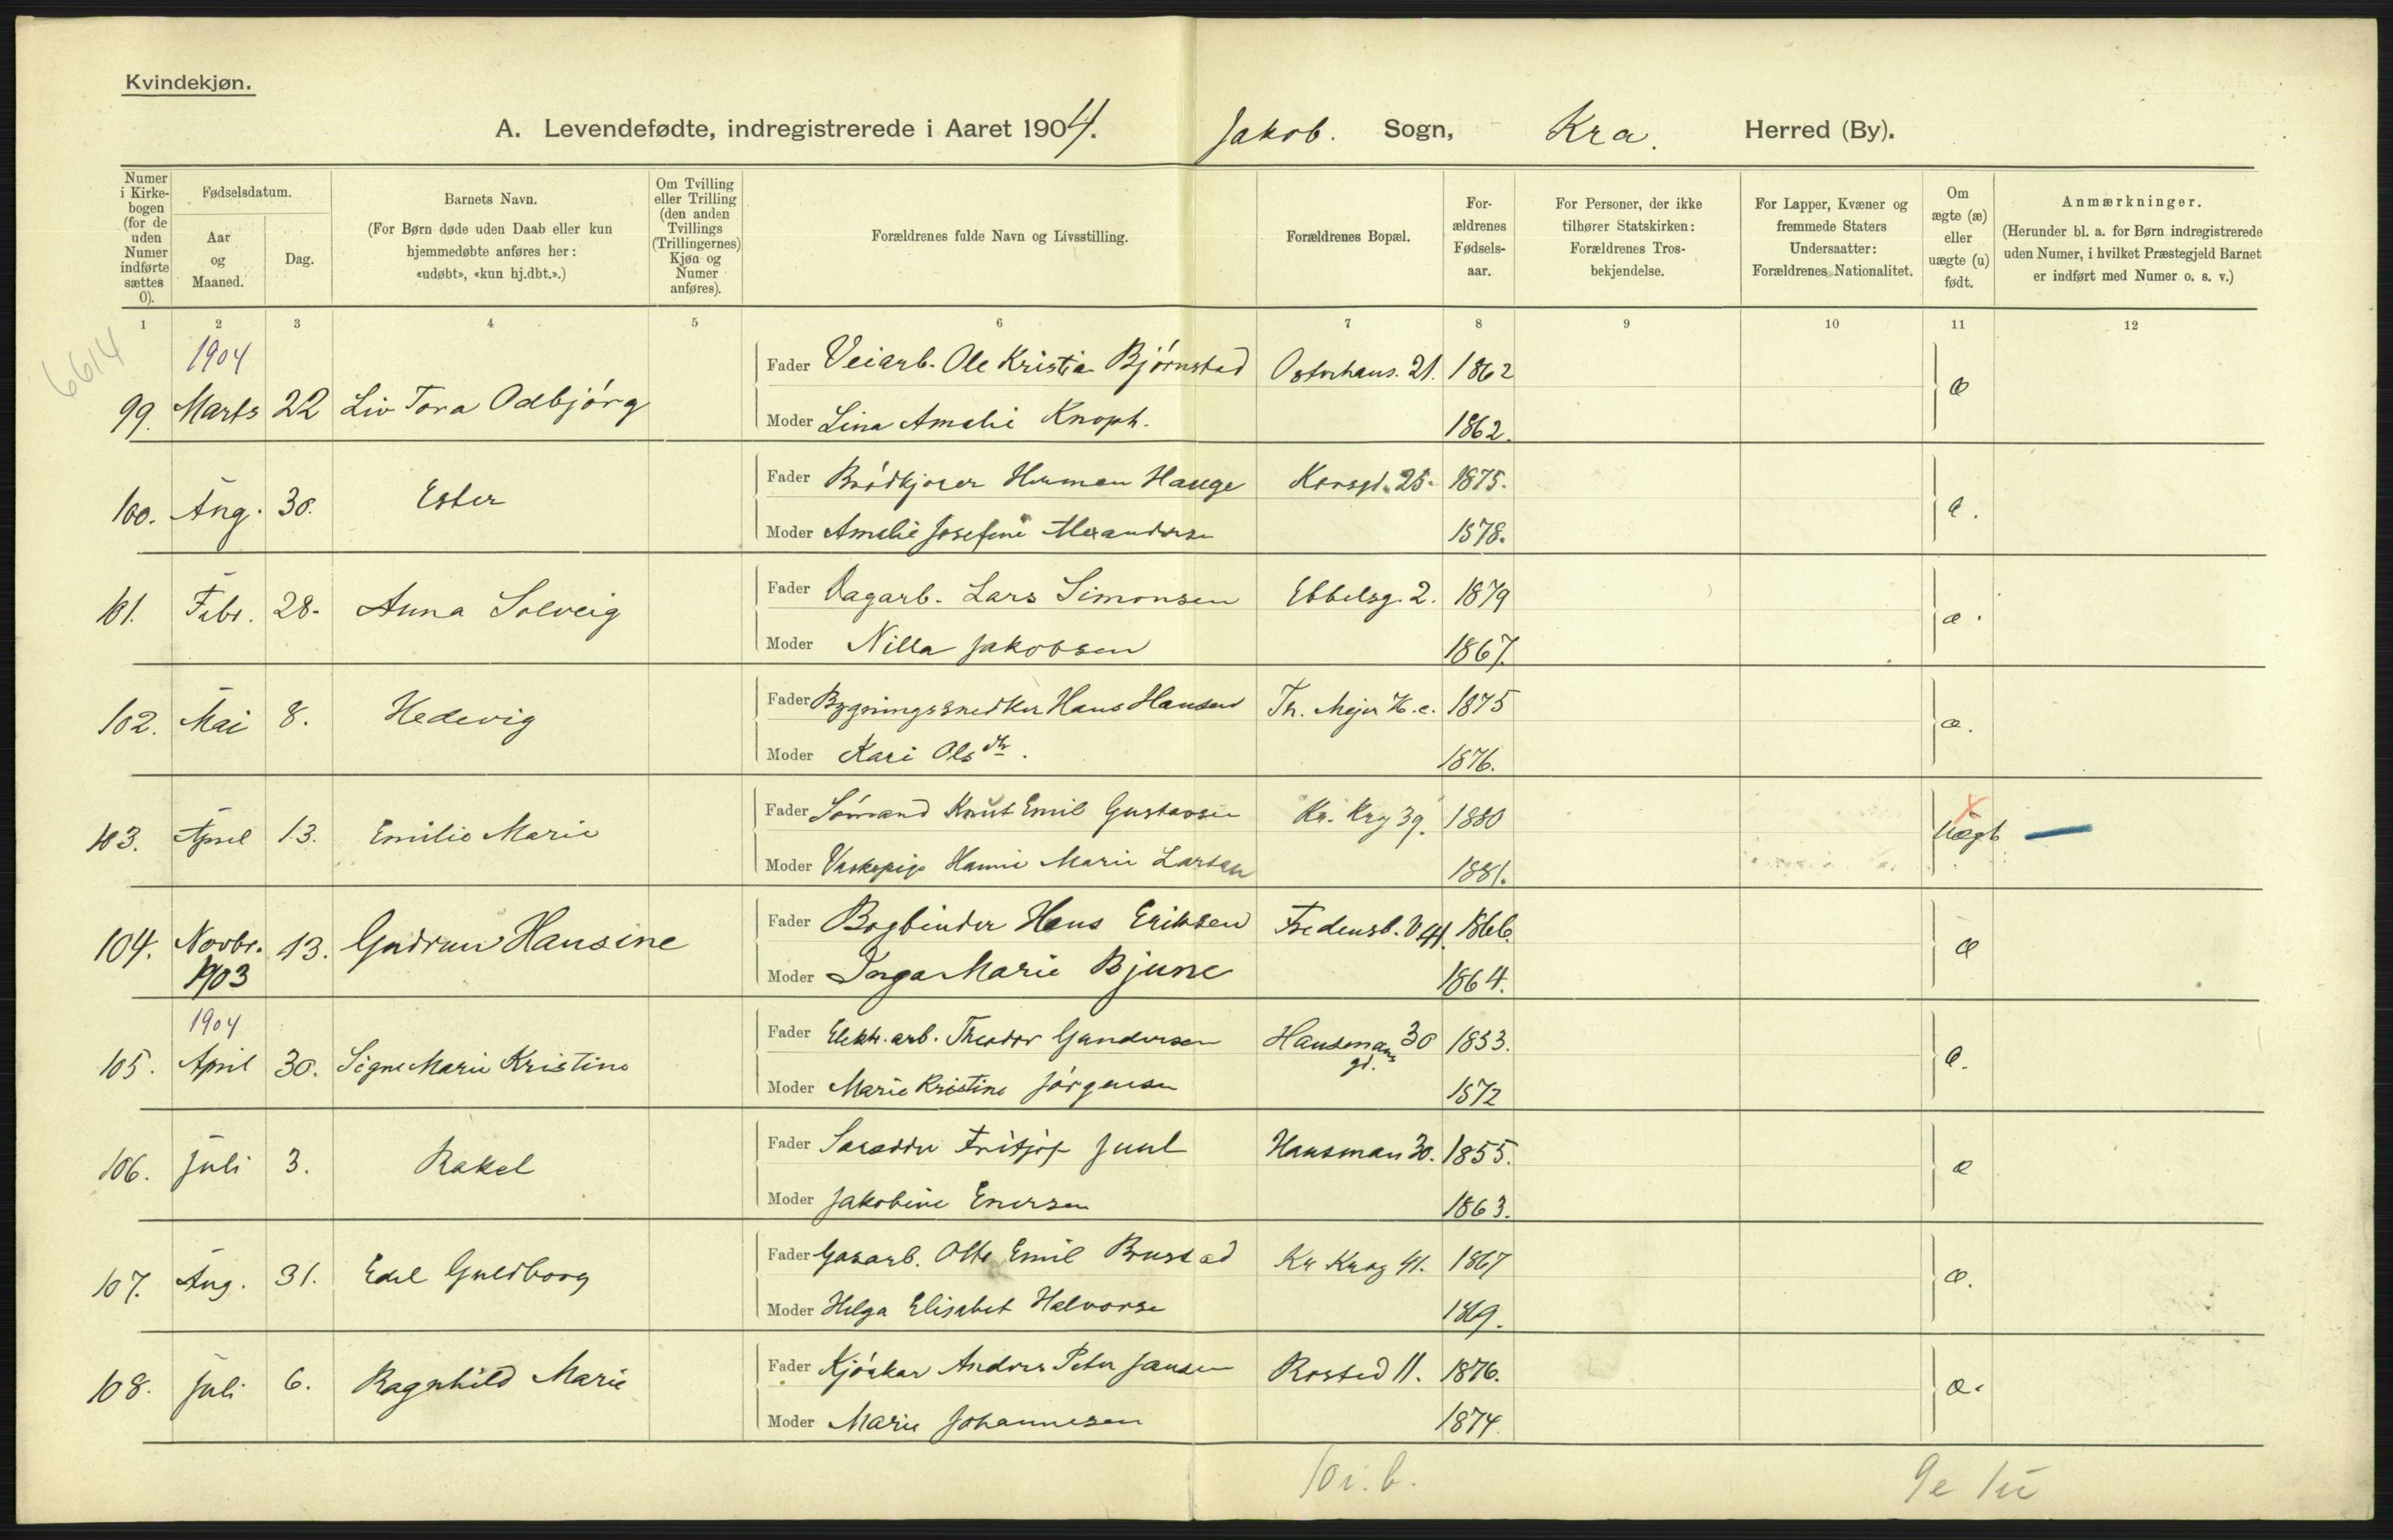 Kvindekjøn.
A. Levendefødte, indregistrerede i Aaret 1904. Jakob. Sogn, Kra. Herred (By).
Numer i Kirkebogen (for de uden Numer indførte sættes 0).
Fødselsdatum.
Aar og Maaned.
Dag.
Barnets Navn.
(For Børn døde uden Daab eller kun hjemmedøbte anføres her: «udøbt», «kun hj.dbt.».)
Om Tvilling eller Trilling (den anden Tvillings (Trillingernes) Kjøn og Numer anføres).
Forældrenes fulde Navn og Livsstilling.
Forældrenes Bopæl.
Forældrenes Fødselsaar.
For Personer, der ikke tilhører Statskirken: Forældrenes Trosbekjendelse.
For Lapper, Kvæner og fremmede Staters Undersaatter: Forældrenes Nationalitet.
Om ægte (æ) eller uægte (u) født.
Anmærkninger.
(Herunder bl. a. for Børn indregistrerede uden Numer, i hvilket Præstegjeld Barnet er indført med Numer o. s. v.)
1 2 3 4 5 6 7 8 9 10 11 12
6614
1904
99. Marts 22 Liv Tora Odbjörg
Fader Veiarb. Ole Kristia Björnstad Osterhaus. 21. 1862 æ
Moder Lina Amalie Knoph. 1862.
100. Aug. 30. Ester
Fader Brödkjører Herman Hauge Korsgd. 25. 1875. æ.
Moder Amalie Josefine Alexandersen 1878.
101. Febr. 28. Anna Solveig
Fader Dagarb. Lars Simonsen Ebbelsg. 2. 1879 æ.
Moder Nilla Jakobsen 1867.
102. Mai 8. Hedevig
Fader Bygningssnedker Hans Hansen Th. Mejer 1875 æ.
Moder Kari Olsdtr. 1876.
103. April 13. Emilie Marie
Fader Sömand Knut Emil Gustavsen Kr. Krg 39. 1880 uægt
Moder Vaskepige Hanni Marie Larsen 1881.
104. Novbr. 13. Gudrun Hansine
1903
Fader Bogbinder Hans Eriksen Fredensb. V 41. 1866. æ
Moder Inga Marie Bjune 1864.
1904
105. April 30. Signe Marie Kristine
Fader Elektr. arb. Theodor Gundersen Hausmans gd. 30 1853. æ.
Moder Marie Kristine Jörgensen 1872
106. Juli 3. Rakel
Fader Fritjof Juul Hausman 30. 1855. æ
Moder Jakobine Enersen 1863.
107. Aug. 31. Edel Guldborg
Fader Gasarb. Otto Emil Brustad Kr Krog 41. 1867 æ.
Moder Helga Elisabet Halvorse 1869.
108. Juli 6. Ragnhild Marie
Fader Kjörkar Anders Peter Jansen Rosted 11. 1876. æ.
Moder Marie Johannesen 1874.
10 i. b. 9e 1u